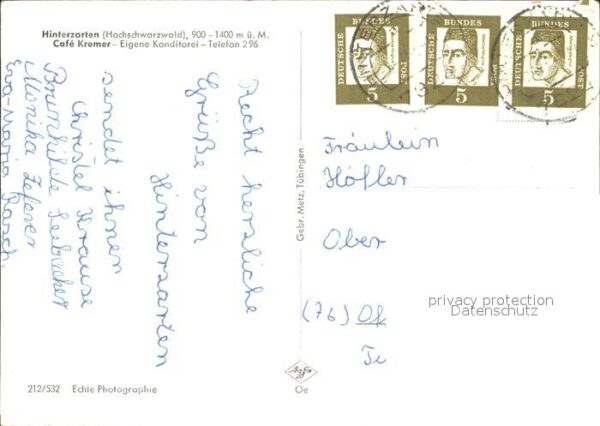 Hinterzarten (Hochschwarzwald), 900 – 1400 m ü. M.
Café Kremer – Eigene Konditorei – Telefon 296
Recht herzliche
Grüße von
Hinterzarten
sendet ihnen
Christel Krause
Brunhilde Seebacher
Monika Zeferer
Eva-Maria Rasch.
Gebr. Metz, Tübingen
DEUTSCHE BUNDESPOST 5
DEUTSCHE BUNDESPOST 5
DEUTSCHE BUNDESPOST 5
Fräulein
Höfler
Ober
(76) Of
privacy protection
Datenschutz
212/532 Echte Photographie
Agfa
Oe